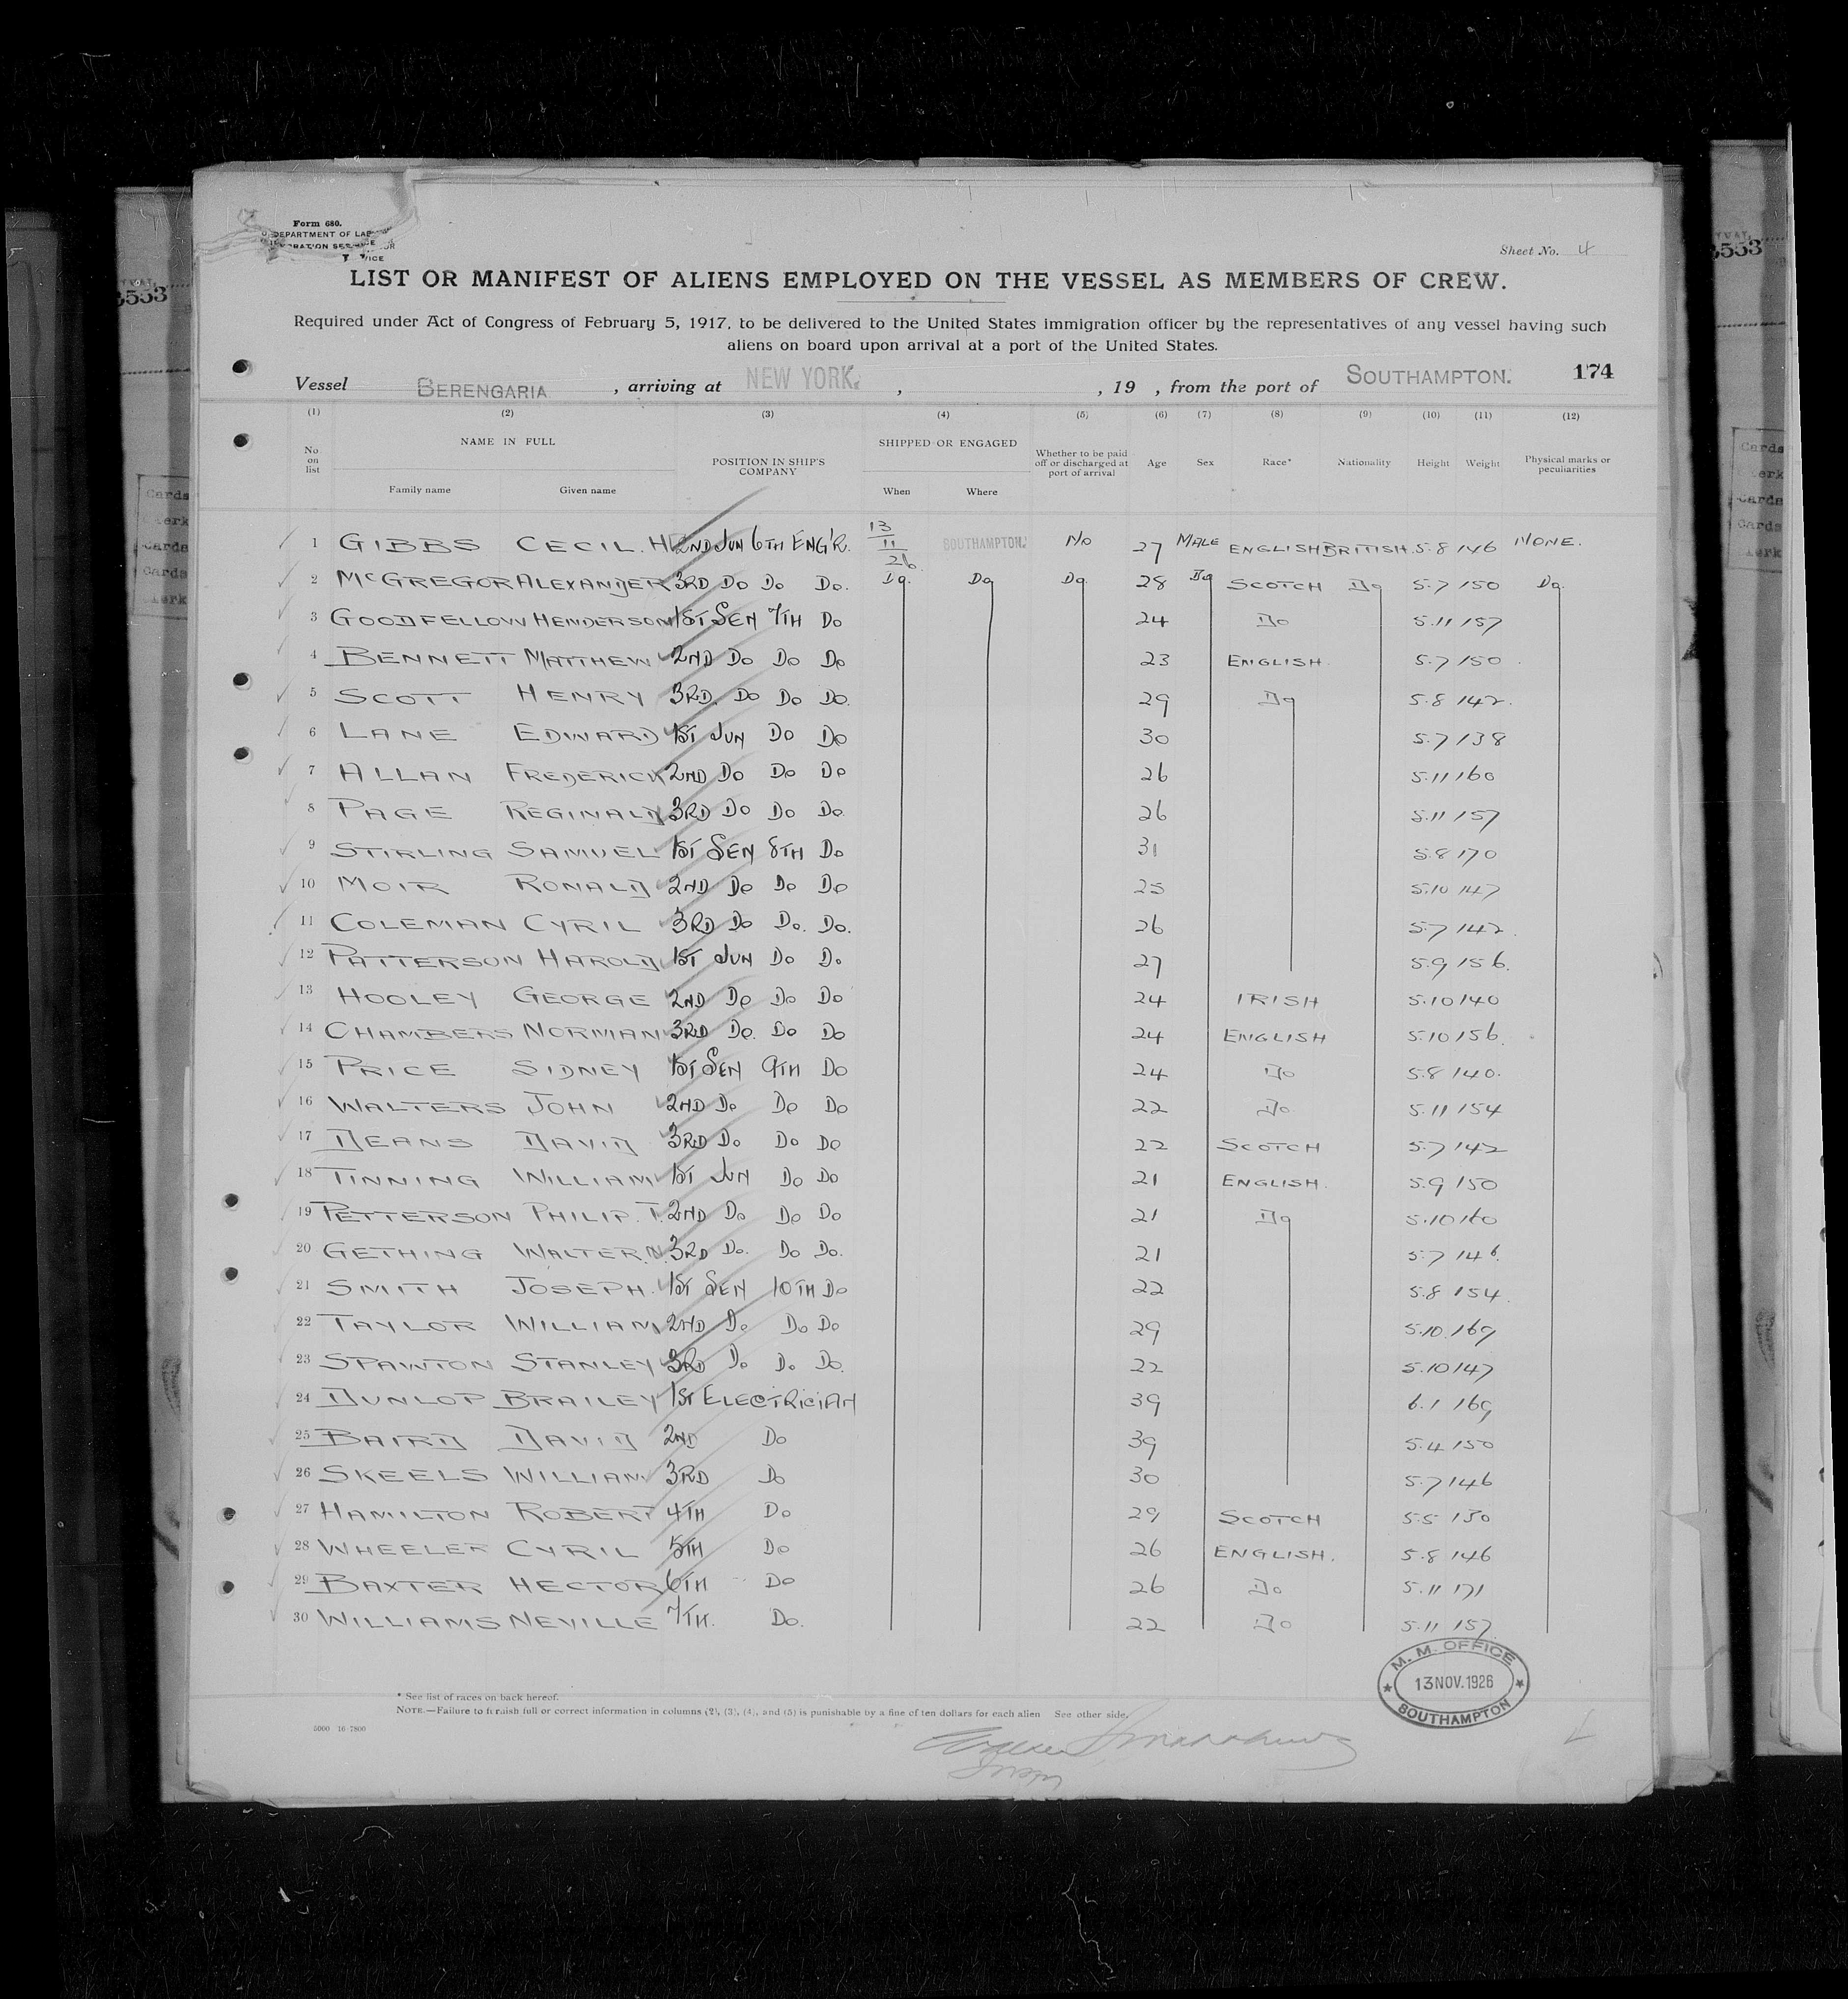 Form 680.
DEPARTMENT OF LAB
Sheet No. 4
LIST OR MANIFEST OF ALIENS EMPLOYED ON THE VESSEL AS MEMBERS OF CREW.
Required under Act of Congress of February 5, 1917, to be delivered to the United States immigration officer by the representatives of any vessel having such
aliens on board upon arrival at a port of the United States.
Vessel BERENGARIA , arriving at NEW YORK. , , 19 , from the port of SOUTHAMPTON. 174
(1) (2) (3) (4) (5) (6) (7) (8) (9) (10) (11) (12)
No on list NAME IN FULL Family name Given name POSITION IN SHIP'S COMPANY SHIPPED OR ENGAGED When Where Whether to be paid off or discharged at port of arrival Age Sex Race* Nationality Height Weight Physical marks or peculiarities
1 GIBBS CECIL. H 2ND JUN 6TH ENG'R. 13/11/26 SOUTHAMPTON. NO 27 MALE ENGLISH BRITISH. 5.8 146 NONE.
2 McGREGOR ALEXANDER 3RD DO DO DO. DO. DO DO 28 DO SCOTCH DO 5.7 150 DO.
3 GOODFELLOW HENDERSON 1ST SEN 7TH DO 24 DO 5.11 157
4 BENNETT MATTHEW 2ND DO DO DO 23 ENGLISH. 5.7 150
5 SCOTT HENRY 3RD. DO DO DO. 29 DO 5.8 142.
6 LANE EDWARD 1ST JUN DO DO 30 5.7 138
7 ALLAN FREDERICK 2ND DO DO DO 26 5.11 160
8 PAGE REGINALD 3RD DO DO DO. 26 5.11 157
9 STIRLING SAMUEL 1ST SEN 8TH DO 31 5.8 170
10 MOIR RONALD 2ND DO DO DO 25 5.10 147
11 COLEMAN CYRIL 3RD DO DO. DO. 26 5.7 142.
12 PATTERSON HAROLD 1ST JUN DO DO 27 5.9 156.
13 HOOLEY GEORGE 2ND DO DO DO 24 IRISH 5.10 140
14 CHAMBERS NORMAN 3RD DO. DO DO 24 ENGLISH 5.10 156.
15 PRICE SIDNEY 1ST SEN 9TH DO 24 DO 5.8 140.
16 WALTERS JOHN 2ND DO DO DO 22 DO 5.11 154
17 DEANS DAVID 3RD DO DO DO 22 SCOTCH 5.7 142
18 TINNING WILLIAM 1ST JUN DO DO 21 ENGLISH. 5.9 150
19 PETTERSON PHILIP. T. 2ND DO DO DO 21 DO 5.10 160
20 GETHING WALTER N. 3RD DO. DO DO. 21 5.7 146.
21 SMITH JOSEPH. 1ST SEN 10TH DO 22 5.8 154.
22 TAYLOR WILLIAM 2ND DO DO DO 29 5.10. 169
23 SPAWTON STANLEY 3RD DO DO DO. 22 5.10 147
24 DUNLOP BRAILEY 1ST ELECTRICIAN 39 6.1 169
25 BAIRD DAVID 2ND DO 39 5.4 150
26 SKEELS WILLIAM 3RD DO 30 5.7 146
27 HAMILTON ROBERT 4TH DO 29 SCOTCH 5.5 130
28 WHEELER CYRIL 5TH DO 26 ENGLISH. 5.8 146
29 BAXTER HECTOR 6TH DO 26 DO 5.11 171
30 WILLIAMS NEVILLE 7TH. DO. 22 DO 5.11 157.
M. M. OFFICE
13 NOV. 1926
SOUTHAMPTON
* See list of races on back hereof.
NOTE.—Failure to furnish full or correct information in columns (2), (3), (4), and (5) is punishable by a fine of ten dollars for each alien See other side.
5000 16-7800